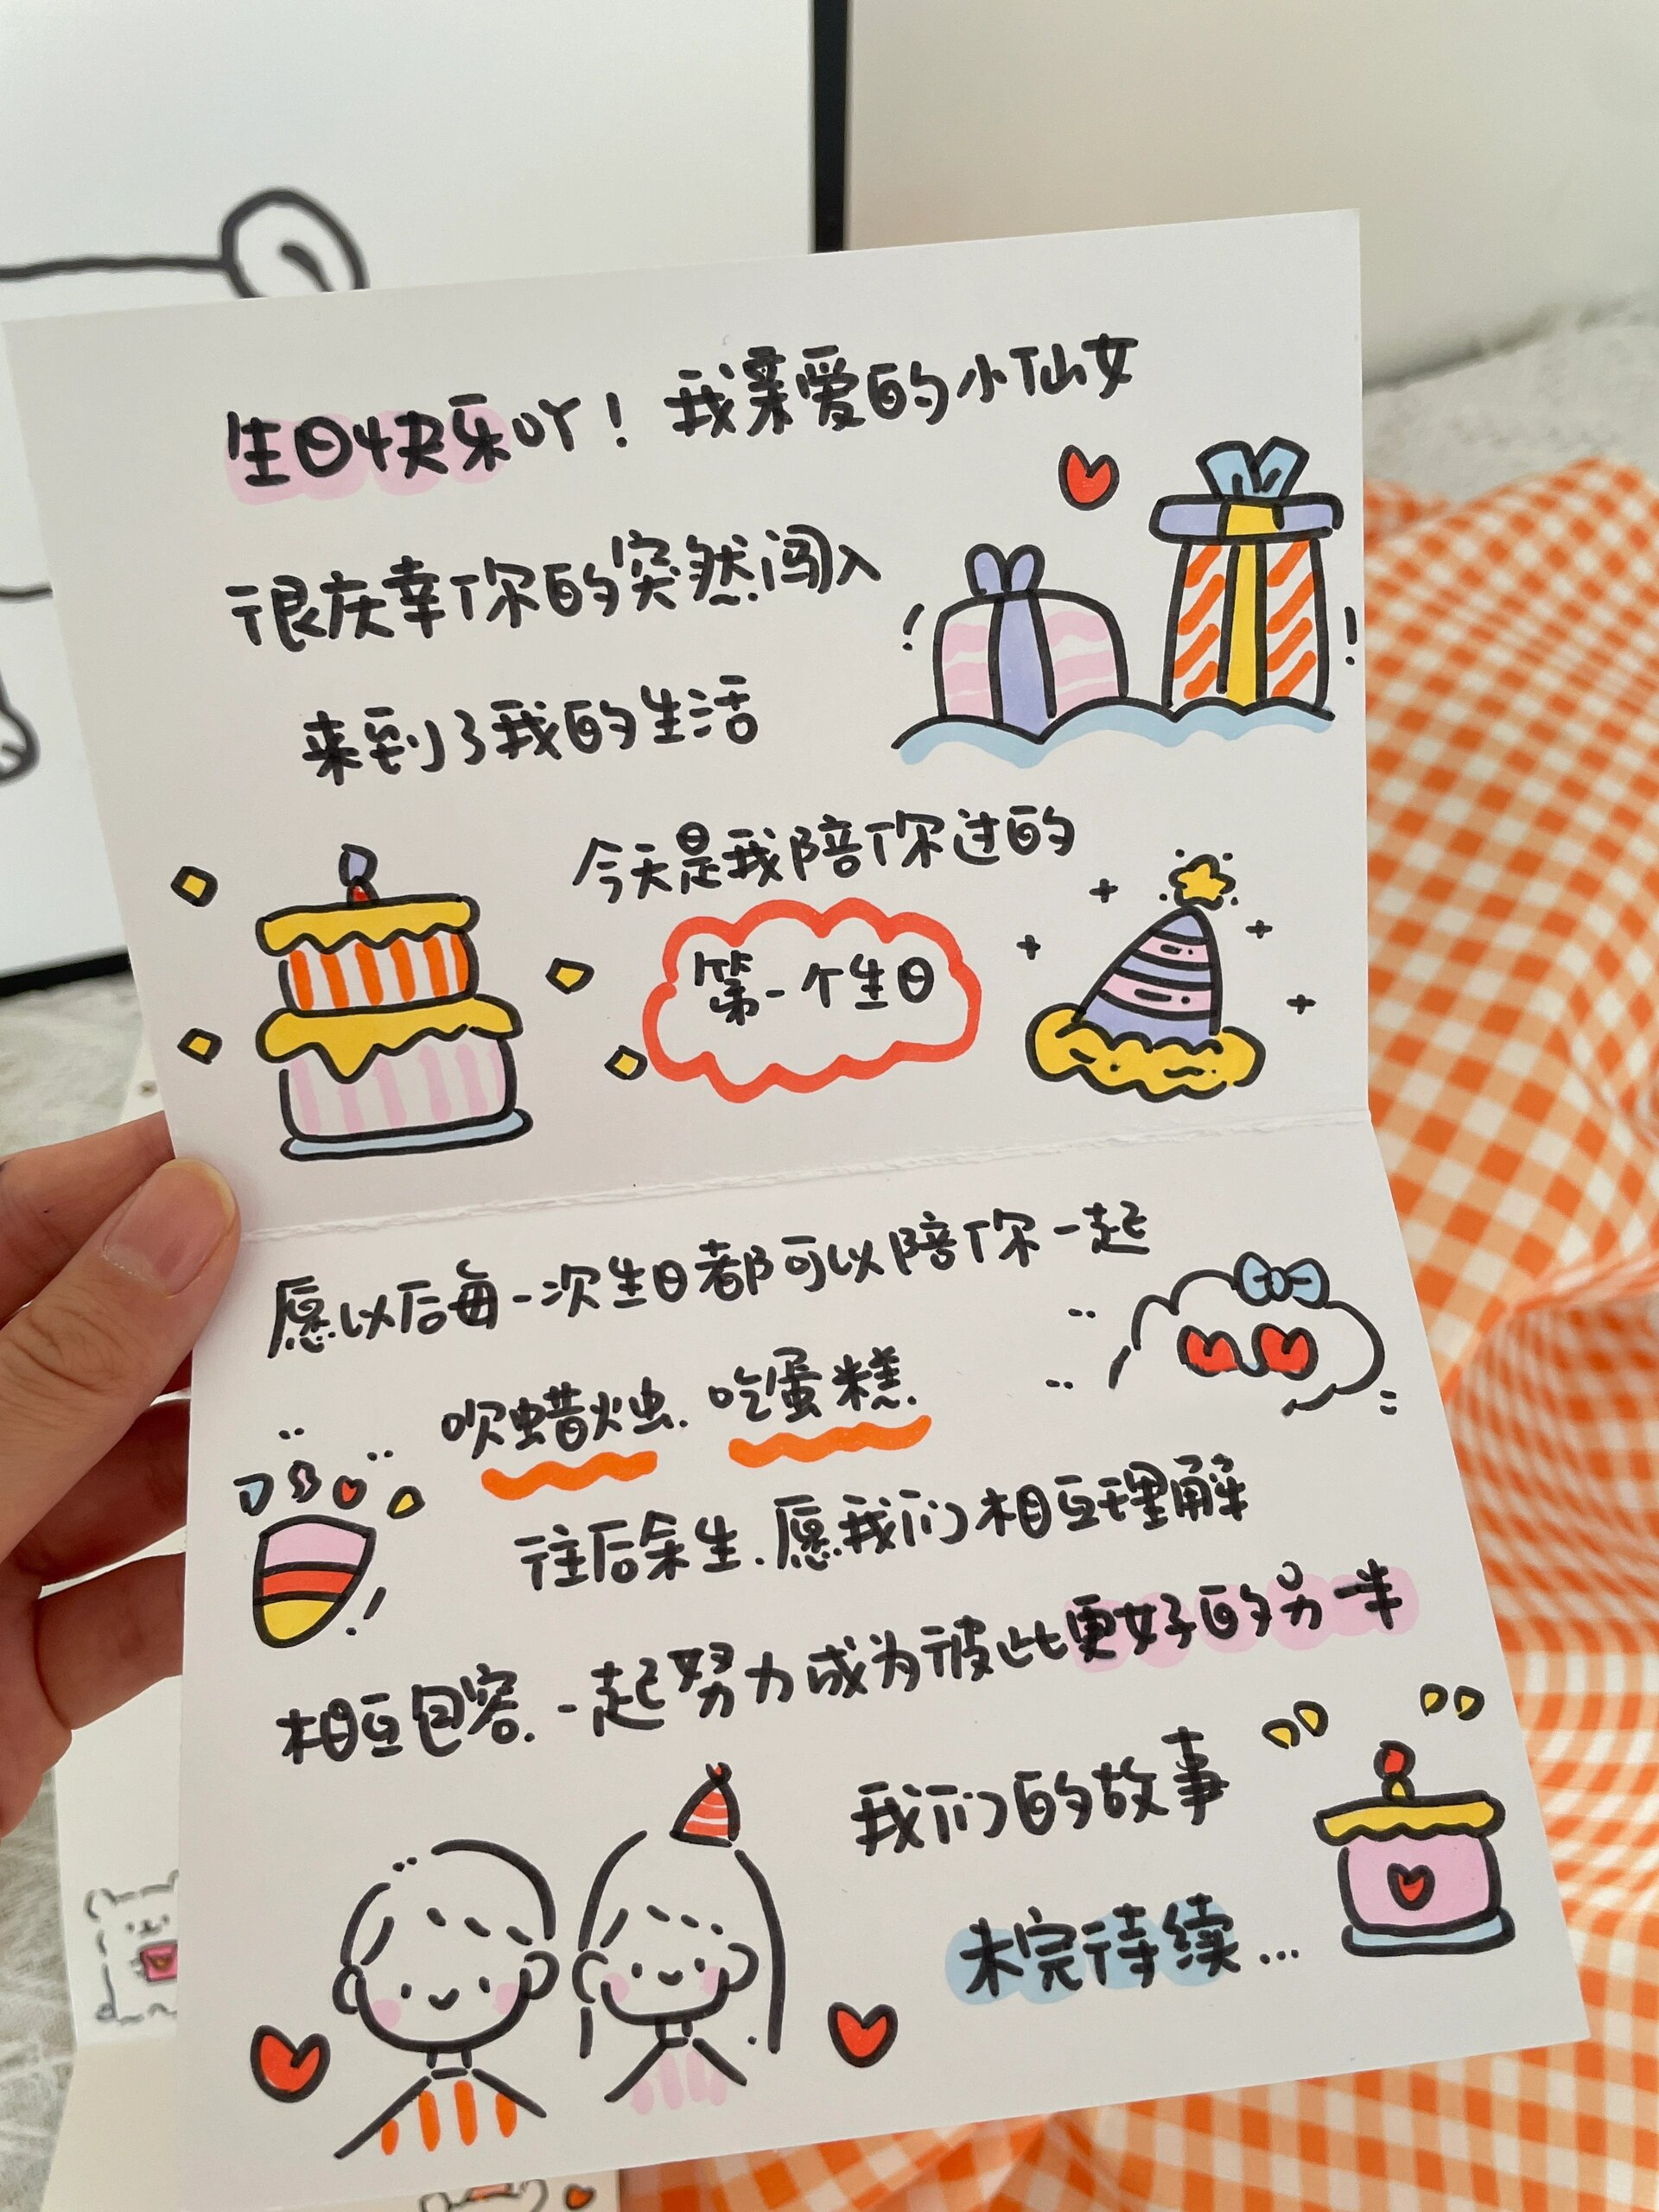 生日快乐吖！我亲爱的小仙女
很庆幸你的突然闯入
来到了我的生活
今天是我陪你过的
第一个生日
愿以后每一次生日都可以陪你一起
吹蜡烛.吃蛋糕.
往后余生.愿我们相互理解
相互包容.一起努力成为彼此更好的另一半
我们的故事
未完待续...